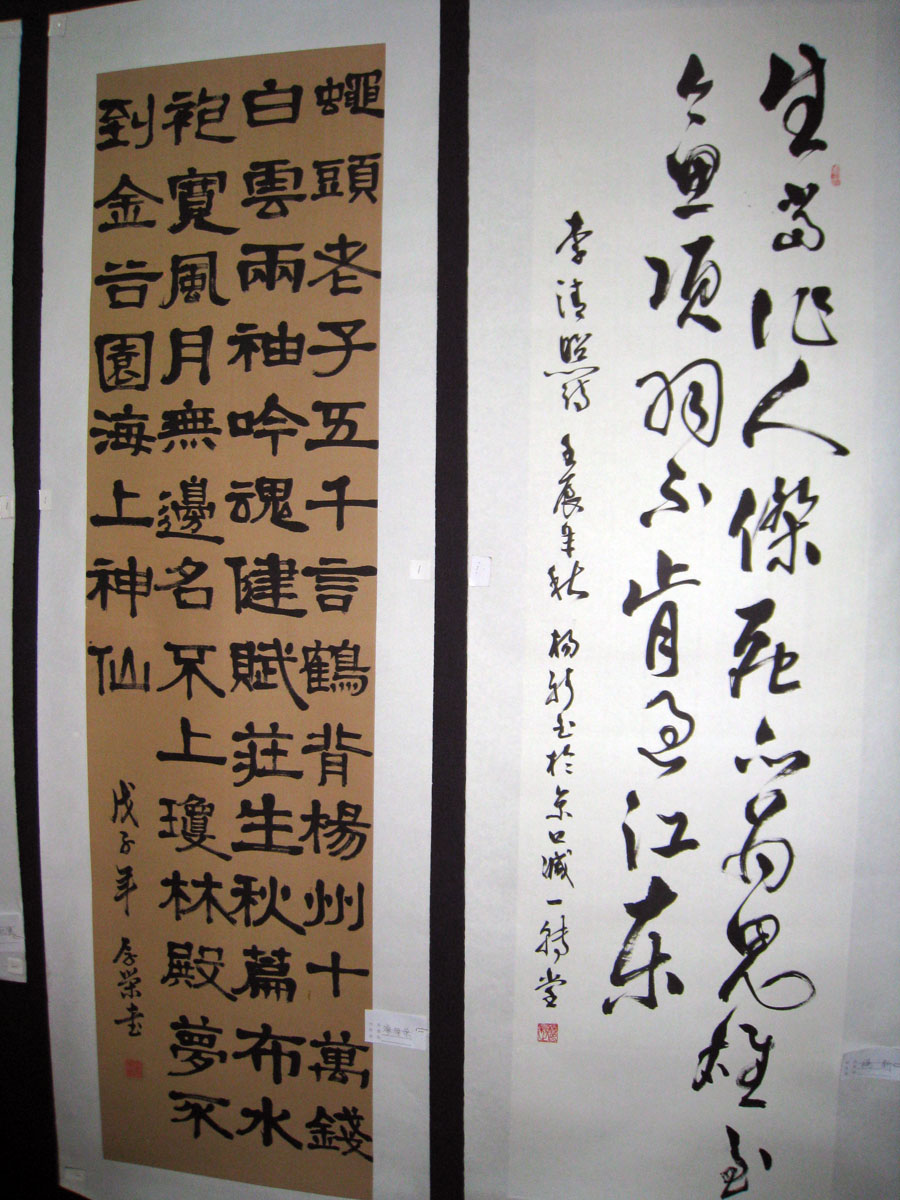 生當作人傑死亦為鬼雄至
今思項羽不肯過江東
李清照詩 壬辰年秋 楊新書於京口減一轉堂
蠅頭老子五千言鶴背楊州十萬錢
白雲兩袖吟魂健賦莊生秋篇布水
袍寬風月無邊名不上瓊林殿夢不
到金谷園海上神仙
戊子年 荣書